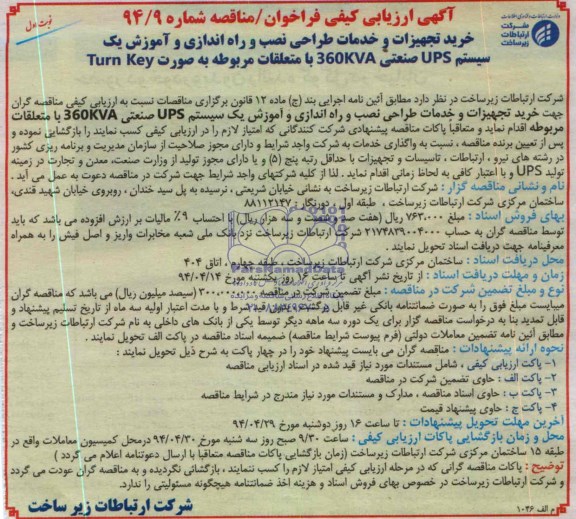 وزارت ارتباطات و فناوری اطلاعات
شرکت
ارتباطات
زیرساخت
نوبت اول
آگهی ارزیابی کیفی فراخوان/مناقصه شماره ۹۴/۹
خرید تجهیزات و خدمات طراحی نصب و راه اندازی و آموزش یک
سیستم UPS صنعتی 360KVA با متعلقات مربوطه به صورت Turn Key
شرکت ارتباطات زیرساخت در نظر دارد مطابق آئین نامه اجرایی بند (ج) ماده ۱۲ قانون برگزاری مناقصات نسبت به ارزیابی کیفی مناقصه گران
جهت خرید تجهیزات و خدمات طراحی نصب و راه اندازی و آموزش یک سیستم UPS صنعتی 360KVA با متعلقات
مربوطه اقدام نماید و متعاقبا پاکات مناقصه پیشنهادی شرکت کنندگانی که امتیاز لازم را در ارزیابی کیفی کسب نمایند را بازگشایی نموده و
پس از تعیین برنده مناقصه ، نسبت به واگذاری خدمات به شرکت واجد شرایط و دارای مجوز صلاحیت از سازمان مدیریت و برنامه ریزی کشور
در رشته های نیرو ، ارتباطات ، تاسیسات و تجهیزات با حداقل رتبه پنج (۵) و یا دارای مجوز تولید از وزارت صنعت، معدن و تجارت در زمینه
تولید UPS و با اعتبار کافی به لحاظ زمانی اقدام نماید . لذا از کلیه شرکتهای واجد شرایط جهت شرکت در مناقصه دعوت به عمل می آید .
نام و نشانی مناقصه گزار : شرکت ارتباطات زیرساخت به نشانی خیابان شریعتی ، نرسیده به پل سید خندان ، روبروی خیابان شهید قندی،
ساختمان مرکزی شرکت ارتباطات زیرساخت ، طبقه اول ، دورنگار : ۸۸۱۱۲۱۴۷
بهای فروش اسناد : مبلغ ۷۶۳،۰۰۰ ریال (هفت صد و شصت و سه هزار ریال) با احتساب ۹٪ مالیات بر ارزش افزوده می باشد که باید
توسط مناقصه گران به حساب ۲۱۷۴۸۳۹۰۰۴۰۰۰ شرکت ارتباطات زیرساخت نزد بانک ملی شعبه مخابرات واریز و اصل فیش را به همراه
معرفینامه جهت دریافت اسناد تحویل نمایند .
محل دریافت اسناد : ساختمان مرکزی شرکت ارتباطات زیرساخت ، طبقه چهارم ، اتاق ۴۰۴
زمان و مهلت دریافت اسناد : از تاریخ نشر آگهی تا ساعت ۱۶ روز یکشنبه مورخ ۹۴/۰۴/۱۴
نوع و مبلغ تضمین شرکت در مناقصه : مبلغ تضمین شرکت در مناقصه ۳۰۰،۰۰۰،۰۰۰ (سیصد میلیون ریال) می باشد که مناقصه گران
میبایست مبلغ فوق را به صورت ضمانتنامه بانکی غیر قابل برگشت بدون قید و شرط و با مدت اعتبار اولیه سه ماه از تاریخ تسلیم پیشنهاد و
قابل تمدید بنا به درخواست مناقصه گزار برای یک دوره سه ماهه دیگر توسط یکی از بانک های داخلی به نام شرکت ارتباطات زیرساخت و
مطابق آئین نامه تضمین معاملات دولتی (فرم پیوست شرایط مناقصه) ضمیمه اسناد مناقصه در پاکت الف تحویل نمایند .
نحوه ارائه پیشنهادات : مناقصه گران می بایست پیشنهاد خود را در چهار پاکت به شرح ذیل تحویل نمایند :
۱- پاکت ارزیابی کیفی ، شامل مستندات مورد نیاز قید شده در اسناد ارزیابی مناقصه
۲- پاکت الف : حاوی تضمین شرکت در مناقصه
۳- پاکت ب : حاوی اسناد مناقصه ، مدارک و مستندات مورد نیاز مندرج در شرایط مناقصه
۴- پاکت ج : حاوی پیشنهاد قیمت
آخرین مهلت تحویل پیشنهادات : تا ساعت ۱۶ روز دوشنبه مورخ ۹۴/۰۴/۲۹
محل و زمان بازگشایی پاکات ارزیابی کیفی : ساعت ۹/۳۰ صبح روز سه شنبه مورخ ۹۴/۰۴/۳۰ درمحل کمیسیون معاملات واقع در
طبقه ۱۵ ساختمان مرکزی شرکت ارتباطات زیرساخت (زمان بازگشایی پاکات مناقصه متعاقبا با ارسال دعوتنامه اعلام می گردد )
توضیح : پاکات مناقصه گرانی که در مرحله ارزیابی کیفی امتیاز لازم را کسب ننمایند ، بازگشائی نگردیده و به مناقصه گران عودت می گردد
و شرکت ارتباطات زیرساخت در خصوص بهای فروش اسناد و هزینه اخذ ضمانتنامه هیچگونه مسئولیتی را ندارد.
شرکت ارتباطات زیر ساخت
م الف ۱۰۴۶
ParsNamadData